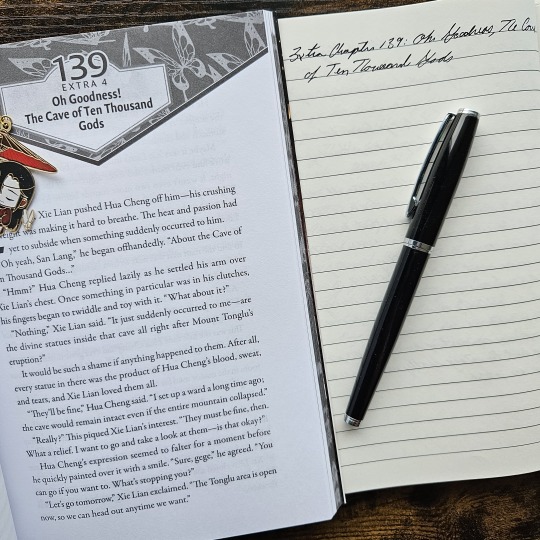 139
EXTRA 4
Oh Goodness!
The Cave of Ten Thousand
Gods
Xie Lian pushed Hua Cheng off him—his crushing
was making it hard to breathe. The heat and passion had
yet to subside when something suddenly occurred to him.
"Oh yeah, San Lang," he began offhandedly. "About the Cave of
Thousand Gods..."
"Hmm?" Hua Cheng replied lazily as he settled his arm over
Xie Lian's chest. Once something in particular was in his clutches,
his fingers began to twiddle and toy with it. "What about it?"
"Nothing," Xie Lian said. "It just suddenly occurred to me—are
the divine statues inside that cave all right after Mount Tonglu's
eruption?"
It would be such a shame if anything happened to them. After all,
every statue in there was the product of Hua Cheng's blood, sweat,
and tears, and Xie Lian loved them all.
"They'll be fine," Hua Cheng said. "I set up a ward a long time ago;
the cave would remain intact even if the entire mountain collapsed."
"Really?" This piqued Xie Lian's interest. "They must be fine, then.
What a relief. I want to go and take a look at them—is that okay?"
Hua Cheng's expression seemed to falter for a moment before
he quickly painted over it with a smile. "Sure, gege," he agreed. "You
can go if you want to. What's stopping you?"
"Let's go tomorrow," Xie Lian exclaimed. "The Tonglu area is open
now, so we can head out anytime we want."
Extra Chapter 139: Oh Goodness, The
of Ten Thousand Gods